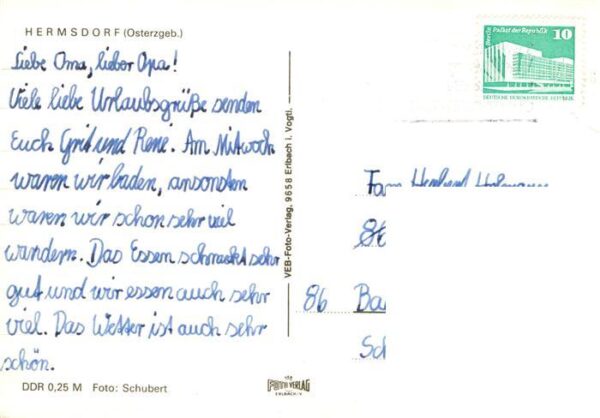 HERMSDORF (Osterzgeb.)
Liebe Oma, lieber Opa!
Viele liebe Urlaubsgrüße senden
Euch Grit und René. Am Mitwoch
waren wir baden, ansonsten
waren wir schon sehr viel
wandern. Das Essen schmeckt sehr
gut und wir essen auch sehr
viel. Das Wetter ist auch sehr
schön.
DDR 0,25 M Foto: Schubert
VEB-Foto-Verlag, 9658 Erlbach i. Vogtl.
FOTO VERLAG
ERLBACH/V.
Berlin Palast der Republik
10
DEUTSCHE DEMOKRATISCHE REPUBLIK
Fam.
86
86 Ba
Sch